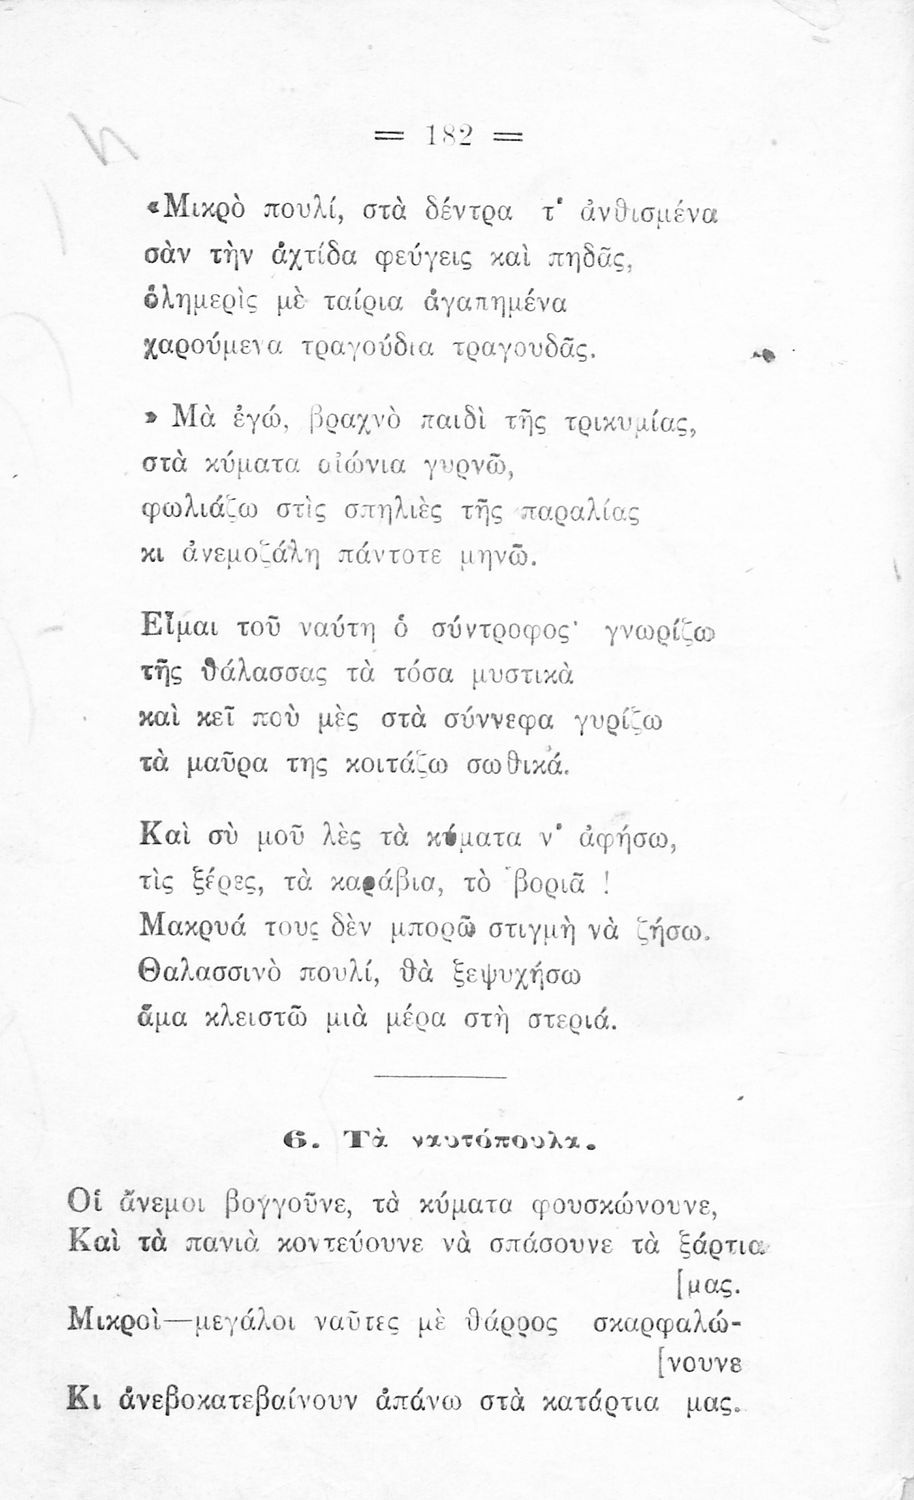 = 182 =
«Μικρὸ πουλί, στὰ δέντρα τ' ἀνθισμένα
σὰν τὴν ἀχτίδα φεύγεις καὶ πηδᾶς,
ὁλημερὶς μὲ ταίρια ἀγαπημένα
χαρούμενα τραγούδια τραγουδᾶς.
» Μὰ ἐγώ, βραχνὸ παιδὶ τῆς τρικυμίας,
στὰ κύματα αἰώνια γυρνῶ,
φωλιάζω στὶς σπηλιὲς τῆς παραλίας
κι ἀνεμοζάλη πάντοτε μηνῶ.
Εἶμαι τοῦ ναύτη ὁ σύντροφος· γνωρίζω
τῆς θάλασσας τὰ τόσα μυστικὰ
καὶ κεῖ ποὺ μὲς στὰ σύννεφα γυρίζω
τὰ μαῦρα της κοιτάζω σωθικά.
Καὶ σὺ μοῦ λὲς τὰ κύματα ν' ἀφήσω,
τὶς ξέρες, τὰ καράβια, τὸ βοριᾶ !
Μακρυά τους δὲν μπορῶ στιγμὴ νὰ ζήσω.
Θαλασσινὸ πουλί, θὰ ξεψυχήσω
ἅμα κλειστῶ μιὰ μέρα στὴ στεριά.
6. Τὰ ναυτόπουλα.
Οἱ ἄνεμοι βογγοῦνε, τὰ κύματα φουσκώνουνε,
Καὶ τὰ πανιὰ κοντεύουνε νὰ σπάσουνε τὰ ξάρτια
[μας.
Μικροὶ—μεγάλοι ναῦτες μὲ θάρρος σκαρφαλώ-
[νουνε
Κι ἀνεβοκατεβαίνουν ἀπάνω στὰ κατάρτια μας.